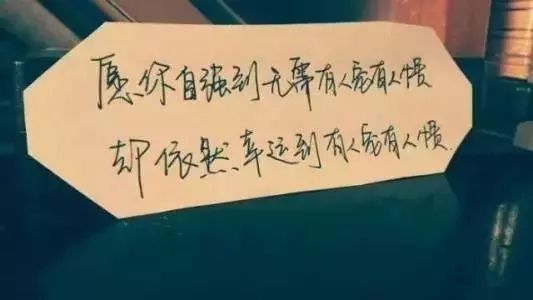 愿你自强到无需有人宠有人惯
却依然幸运到有人宠有人惯.